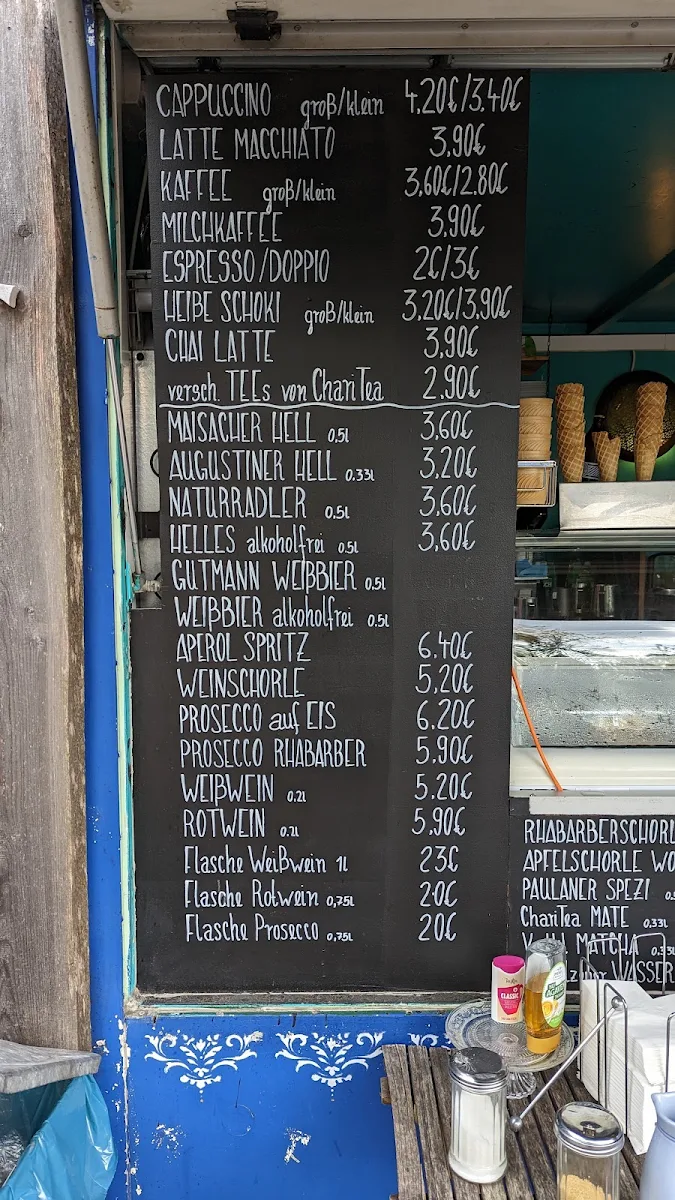 CAPPUCCINO groß/klein 4,20€/3,40€
LATTE MACCHIATO 3,90€
KAFFEE groß/klein 3,60€/2,80€
MILCHKAFFEE 3,90€
ESPRESSO/DOPPIO 2€/3€
HEIßE SCHOKI groß/klein 3,20€/3,90€
CHAI LATTE 3,90€
versch. TEEs von ChariTea 2,90€
MAISACHER HELL 0,5l 3,60€
AUGUSTINER HELL 0,33l 3,20€
NATURRADLER 0,5l 3,60€
HELLES alkoholfrei 0,5l 3,60€
GUTMANN WEIßBIER 0,5l
WEIßBIER alkoholfrei 0,5l
APEROL SPRITZ 6,40€
WEINSCHORLE 5,20€
PROSECCO auf EIS 6,20€
PROSECCO RHABARBER 5,90€
WEIßWEIN 0,2l 5,20€
ROTWEIN 0,2l 5,90€
Flasche Weißwein 1l 23€
Flasche Rotwein 0,75l 20€
Flasche Prosecco 0,75l 20€
RHABARBERSCHORL
APFELSCHORLE WO
PAULANER SPEZI
ChariTea MATE 0,33l
MATCHA
WASSER
CLASSIC